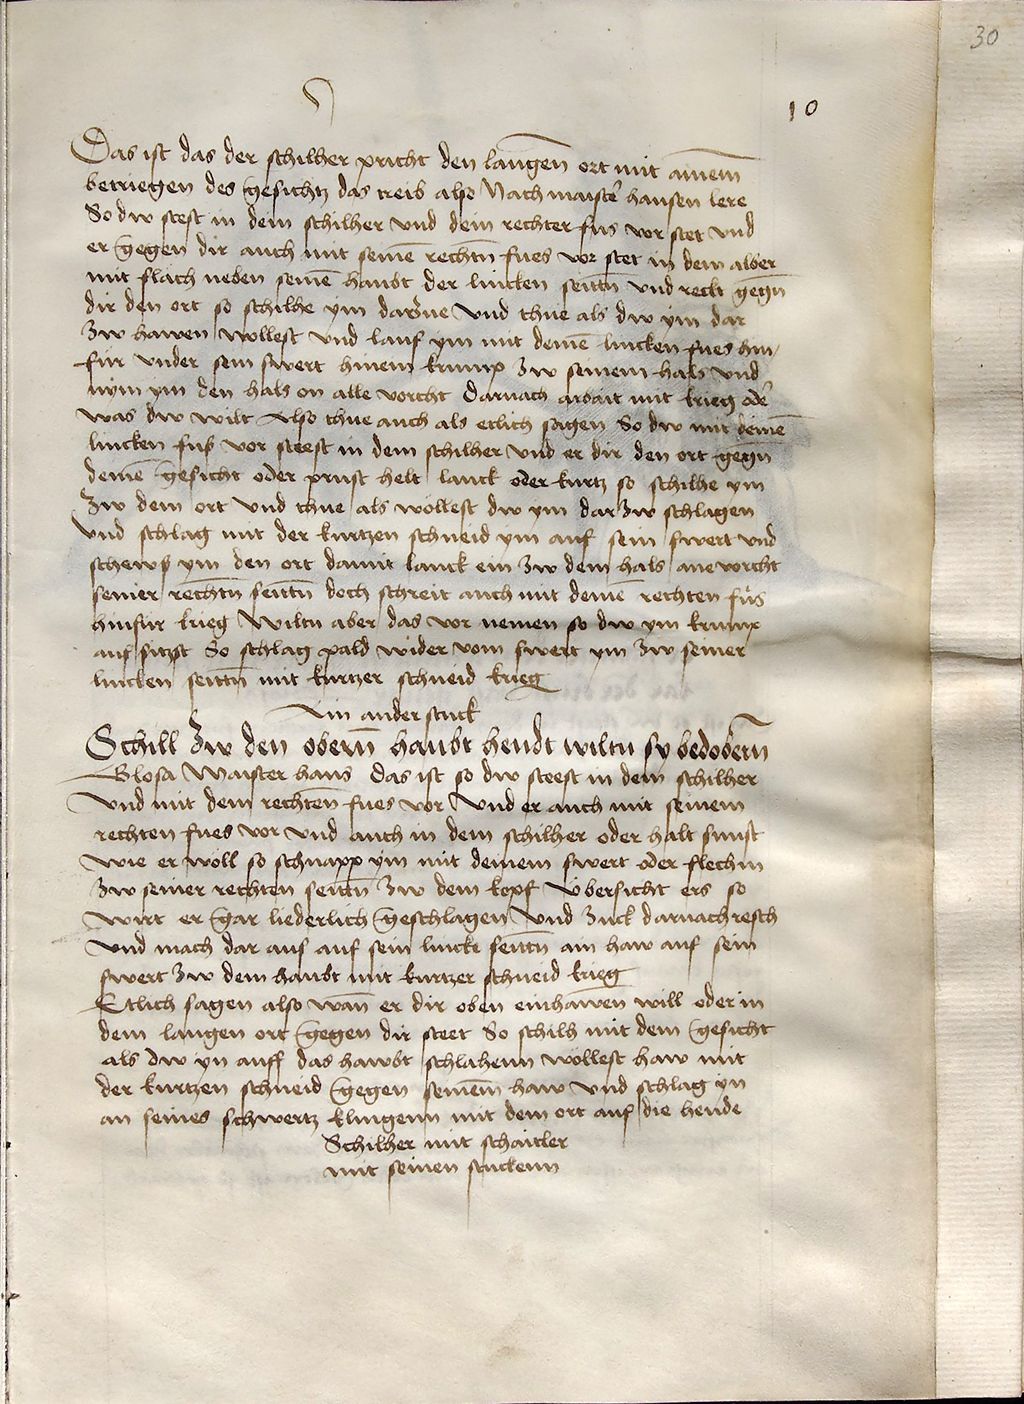 30
10
Das ist das der schilher pricht den langen̄ ort mit ainem̄
betriegen des gesichtz das treib also Nach maiste͛ hansen lere
So dw stest in dem schilher vnd dein rechter fus vor stet vnd
er gegen dir auch mit seinē rechtn̄ fues vor stet in dem alber
mit flach neben seinē haubt der lincken seittn̄ vnd reckt gegn̄
dir den ort so schilhe ym dar vnd thue als dw ym dar
Zw hawen wollest vnd lauf ym mit deinē lincken fues hin/
fur vnder sein swert hinein krump Zw seinem hals vnd
nym ym den hals on alle vorcht Darnach arbait mit krieg ode͛
was dw wilt Also thue auch als etlich sagen So dw mit deinē
lincken fuß vor steest in dem schilher vnd er dir den ort gegn̄
deinē gesicht oder prust helt lanck oder kurtz so schilhe ym
Zw dem ort vnd thue als wöllest dw ym dar Zw schlagen
vnd schlag mit der kurtzen schneid ym auf sein swert vnd
schewß ym den ort damit lanck ein Zw dem hals ane vorcht
seiner rechtn̄ seittn̄ doch schreit auch mit deinē rechten fůs
hinfur krieg Wiltu aber das vor nemen so dw ym krump
auf sitzst So schlag pald wider vom swert ym Zw seiner
lincken seittn̄ mit kurtzer schneid krieg
Ain ander stuck
Schill Zw den obern̄ haubt hendt wiltu sy bedobern̄
Glosa Maister hans Das ist so dw steest in dem schilher
vnd mit dem rechten̄ fues vor vnd er auch mit seinem
rechten fues vor vnd auch in dem schilher oder halt sunst
wie er wöll so schnapp ym mit deinem swert oder flech in
Zw seiner rechten seittn̄ Zw dem kopf übersicht ers so
wirt er gar liederlich geschlagen vnd Zuck darnach resch
vnd mach dar auf auf sein lincke seittn̄ ain haw auf sein
swert Zw dem haubt mit kurtzer schneid krieg
Etlich sagen also wan̄ er dir oben einhawen will oder in
dem langen ort gegen dir steet So schilh mit dem gesicht
als dw yn auff das hawbt schlahenn wöllest haw mit
der kurtzen schneid gegen seinem̄ haw vnd schlag yn
an seines schwertz klingenn mit dem ort auf die hende
Schilher mit schaitler
mit seinen stuckenn